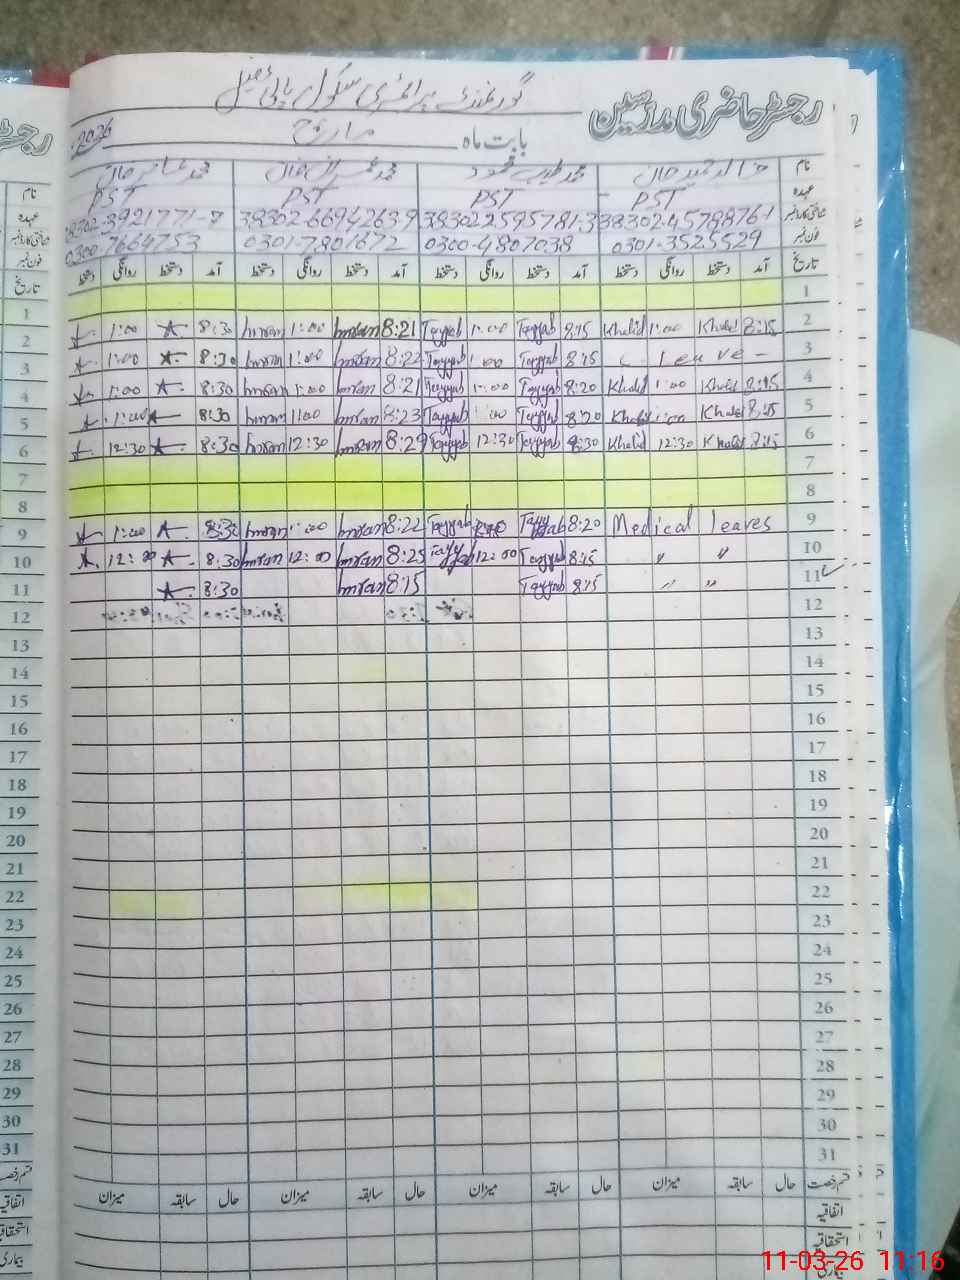 رجسٹر حاضری مدرسین
گورنمنٹ پرائمری سکول
بابت ماہ مارچ 2026
نام خالد حمید خان محمد طیب محمود محمد عمران خان محمد
عہدہ PST PST PST PST
شناختی کارڈ نمبر 38302-4578876-1 38302-2595781-3 38302-6694263-9 38302-3921771-7
فون نمبر 0301-3525529 0300-4807038 0301-7801672 0300-7664753
تاریخ آمد دستخط روانگی دستخط آمد دستخط روانگی دستخط آمد دستخط روانگی دستخط آمد دستخط روانگی دستخط
1
2 8:15 Khalid 1:00 Khalid 8:15 Tayyab 1:00 Tayyab 8:21 Imran 1:00 Imran 8:30 1:00
3 Leave 8:15 Tayyab 1:00 Tayyab 8:22 Imran 1:00 Imran 8:30 1:00
4 8:15 Khalid 1:00 Khalid 8:20 Tayyab 1:00 Tayyab 8:21 Imran 1:00 Imran 8:30 1:00
5 8:15 Khalid 1:00 Khalid 8:20 Tayyab 1:00 Tayyab 8:23 Imran 1:00 Imran 8:30 1:00
6 8:15 Khalid 12:30 Khalid 8:30 Tayyab 12:30 Tayyab 8:29 Imran 12:30 Imran 8:30 12:30
7
8
9 Medical leaves 8:20 Tayyab Tayyab 8:22 Imran 1:00 Imran 8:30 1:00
10 " " 8:15 Tayyab 12:00 Tayyab 8:25 Imran 12:00 Imran 8:30 12:00
11 " " 8:15 Tayyab 8:15 Imran 8:30
12
13
14
15
16
17
18
19
20
21
22
23
24
25
26
27
28
29
30
31
قسم رخصت حال سابقہ میزان حال سابقہ میزان حال سابقہ میزان حال سابقہ میزان
اتفاقیہ
استحقاقیہ
بیماری
11-03-26 11:16